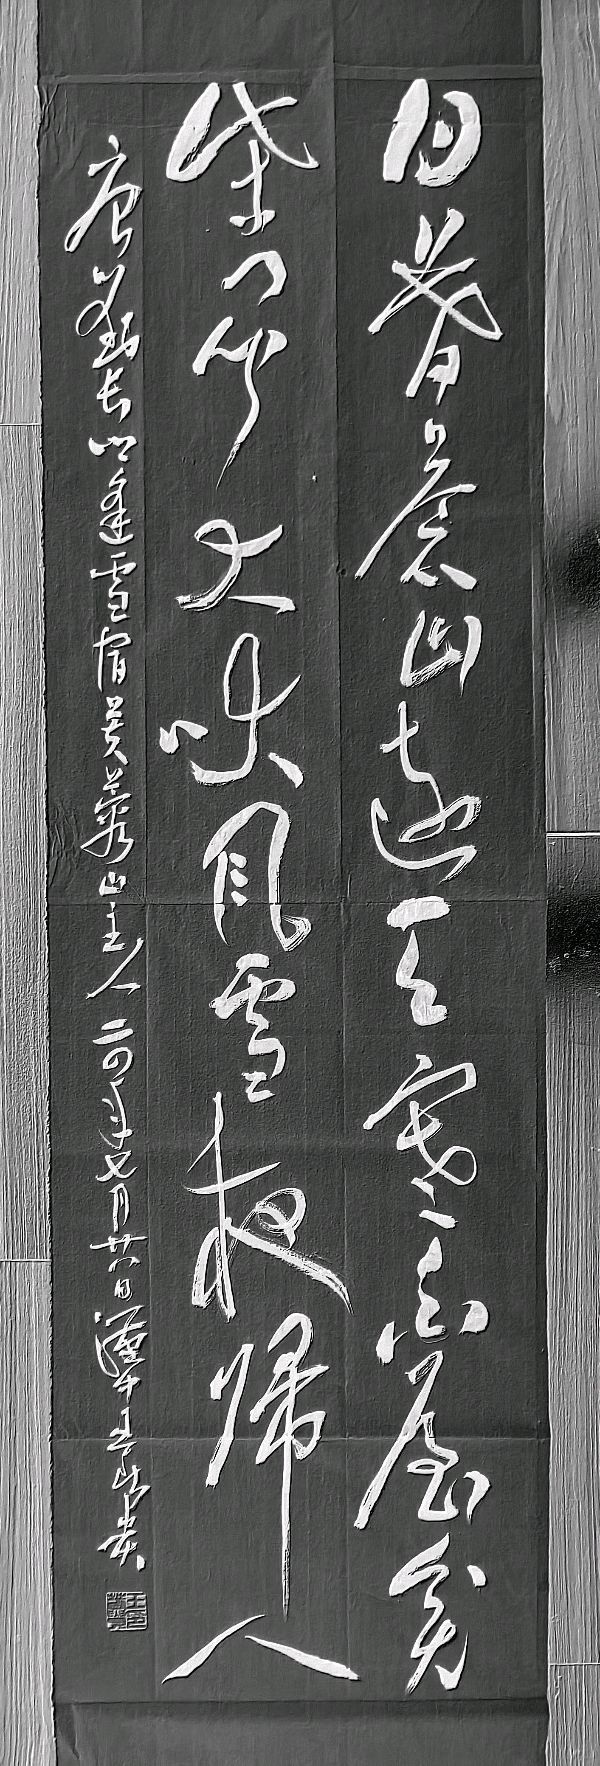 日暮蒼山遠天寒白屋貧
柴門聞犬吠風雪夜歸人
唐劉長卿逢雪宿芙蓉山主人 年七月廿八日漢中